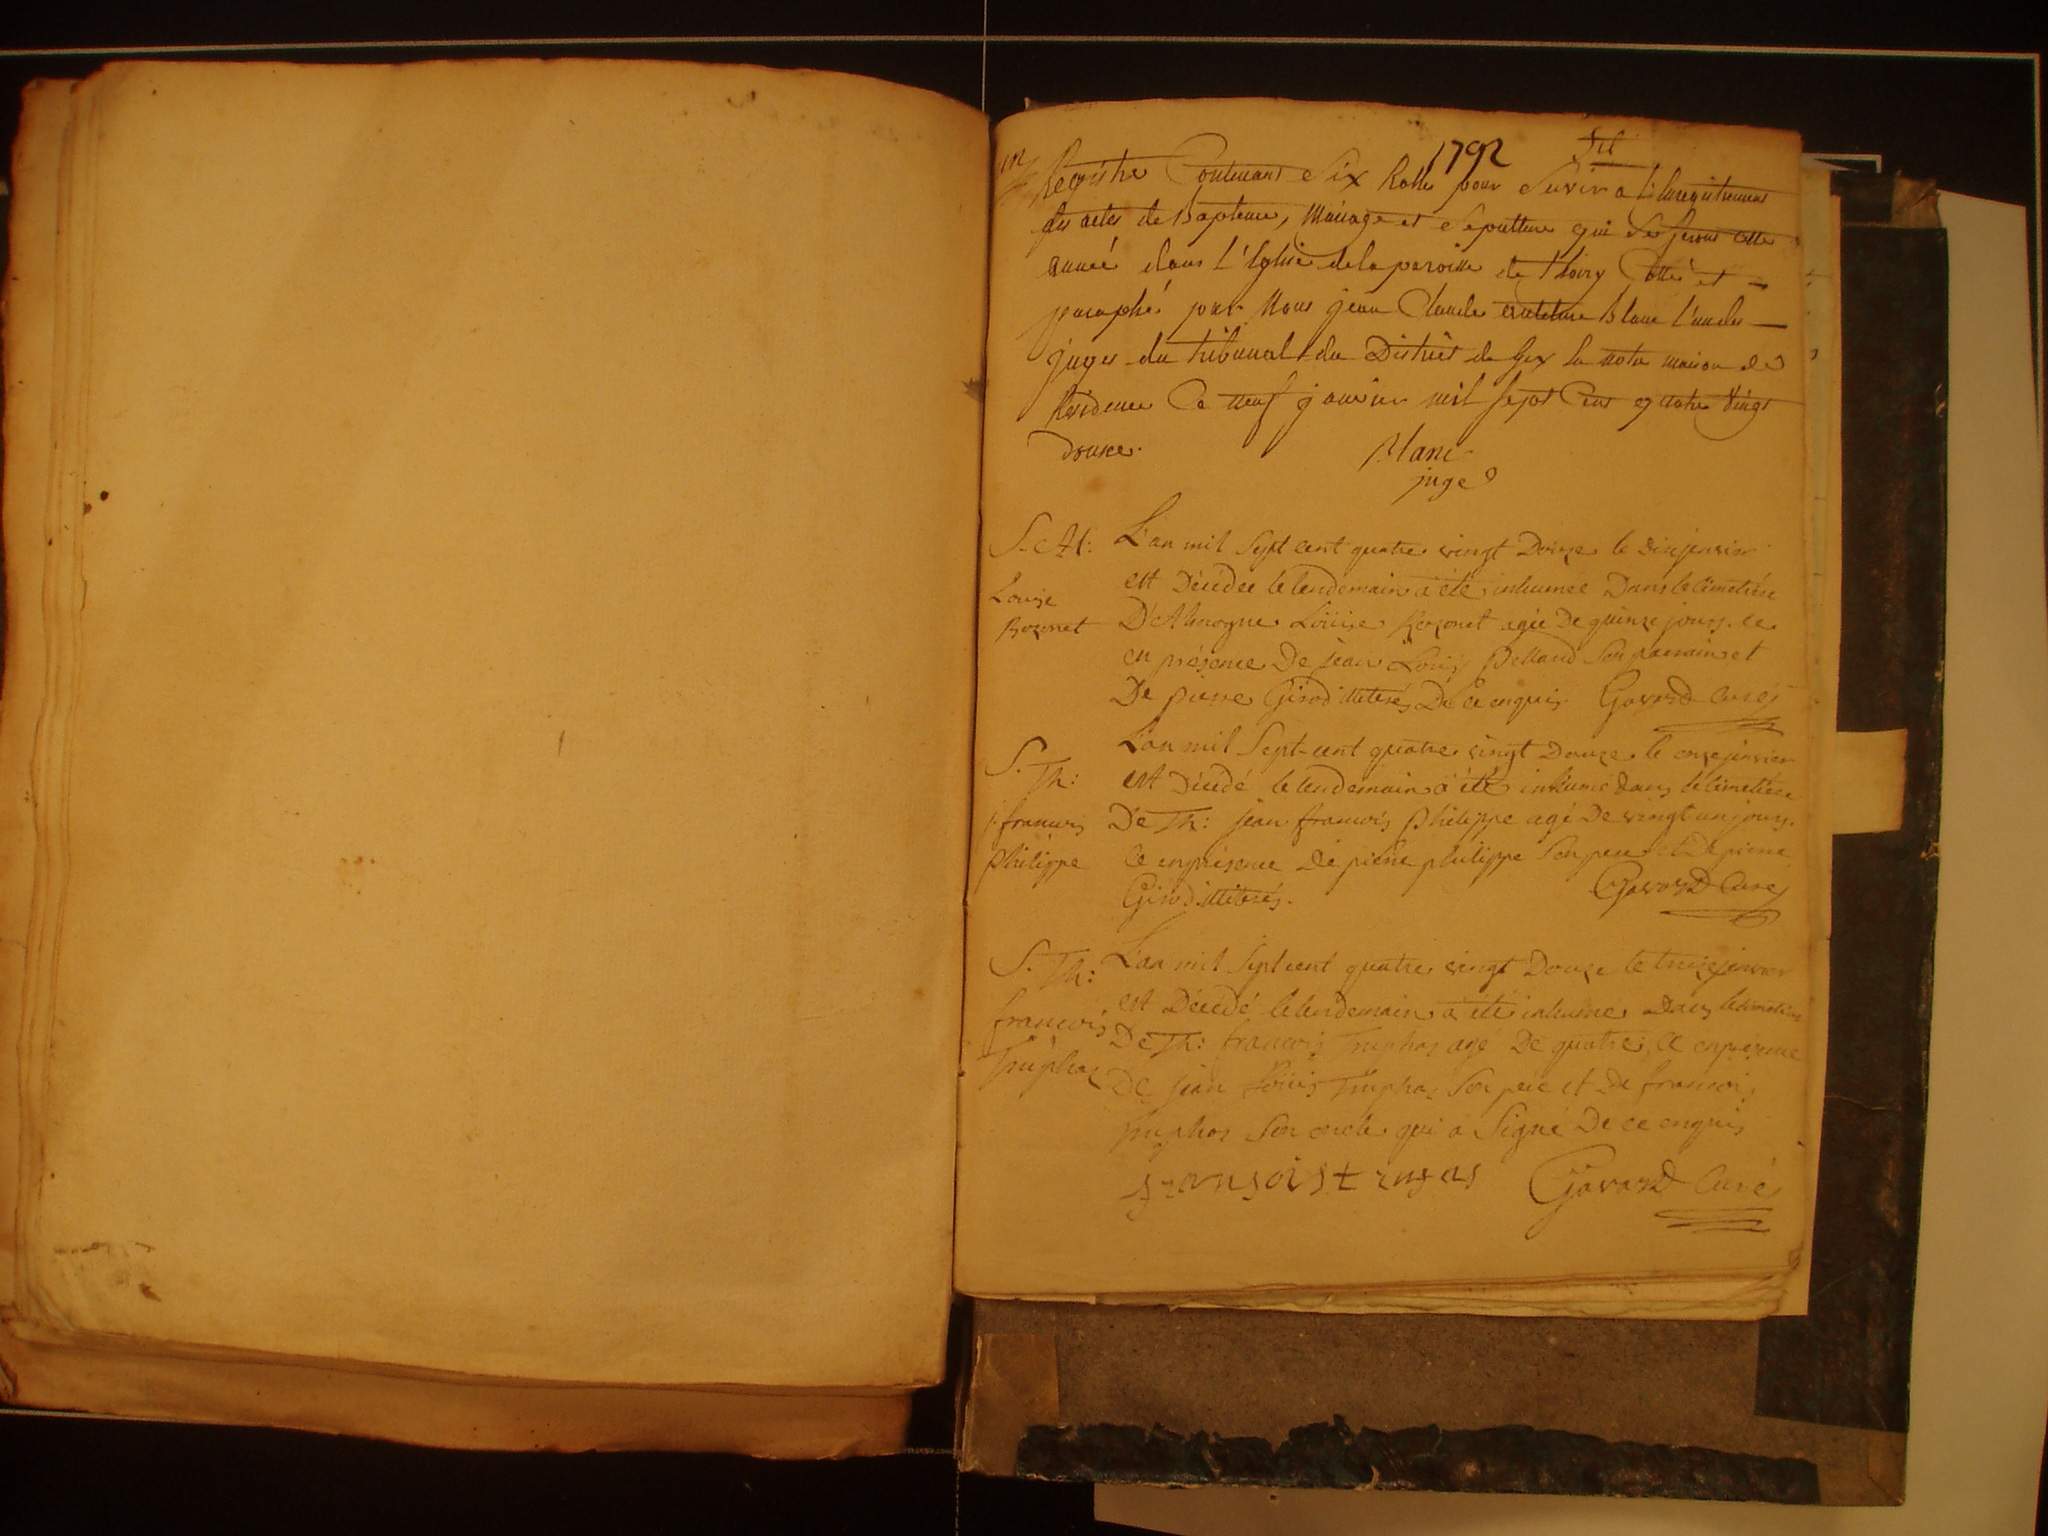 1792
Registre Contenant Six Rolle pour Servir a l'Enregistrement
des actes de Bapteme, Mariage et Sepulture qui se feront cette
année dans l'Eglise de la paroisse de Thoiry Cotté et
paraphé par Nous jean Claude Blanc l'un des
juges du tribunal du District de Gex En notre maison de
Résidence Ce neuf janvier mil sept Cent quatre Vingt
Douze.
Blanc
juge
S. Al:
Louise
Rozonet
L'an mil Sept cent quatre vingt Douze le dix jenvier
est Décédée le lendemain a été inhumée Dans le cimetiére
D'Allemogne Loüise Rozonet agée De quinze jours. ce
en présence De jean Loüis Pelland Son parrain et
De pierre Girod illiterés De ce enquis Gavard Curé
S. Th:
j. francois
Philippe
L'an mil Sept-cent quatre vingt Douze le onze jenvier
est Décédé le lendemain a été inhumé dans le cimetiére
De Th: jean francois Philippe agé De vingt un jours.
Ce en présence De pierre philippe Son pere et De pierre
Girod illiterés. Gavard Curé
S. Th:
francois
Truphas
L'an mil Sept cent quatre vingt Douze le treize jenvier
est Décedé le lendemain a été inhumé dans le cimetiére
De Th: francois Truphas agé De quatre, ce en présence
De jean Loüis Truphas Son pere et De francois
Truphas Son oncle qui a Signé De ce enquis
fransois trufas Gavard Curé